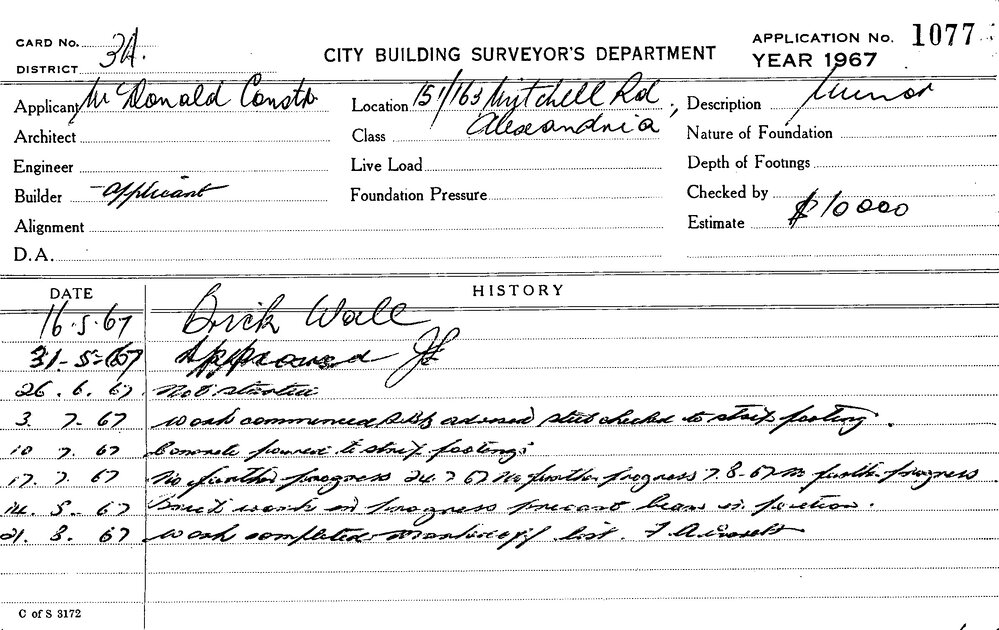 CARD No. 3A.
DISTRICT
CITY BUILDING SURVEYOR'S DEPARTMENT
APPLICATION No. 1077
YEAR 1967
Applicant McDonald Constr
Location 151/163 Mitchell Rd,
Alexandria
Description Minor
Architect
Class
Nature of Foundation
Engineer
Live Load
Depth of Footings
Builder - applicant
Foundation Pressure
Checked by
Alignment
Estimate $10000
D.A.
DATE
HISTORY
16.5.67 Brick Wall
31-5-67 Approved
26.6.67 Not started
3.7.67 Work commenced advised steel checked to strip footing.
10.7.67 Concrete poured to strip footings
17.7.67 No further progress 24.7.67 No further progress 7.8.67 No further progress
14. 67 Brick work in progress precast beam in position.
21.8.67 Work completed list.
C of S 3172